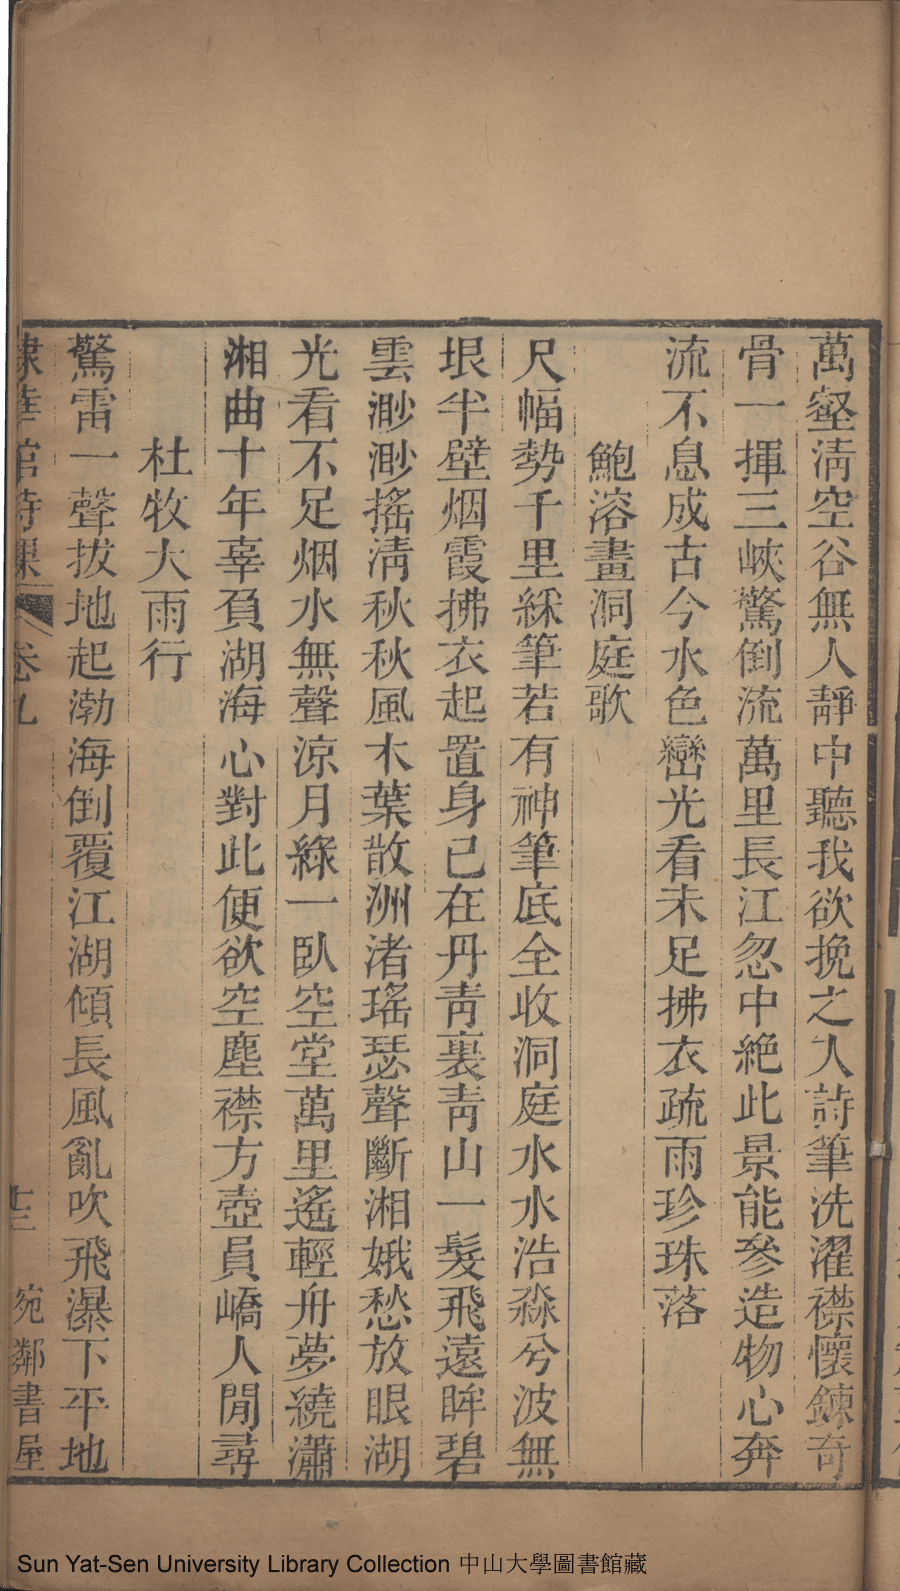 萬壑清空谷無人靜中聽我欲挽之入詩筆洗濯襟懷鍊奇
骨一揮三峽驚倒流萬里長江忽中絕此景能參造物心奔
流不息成古今水色巒光看未足拂衣疏雨珍珠落
鮑溶畫洞庭歌
尺幅勢千里綵筆若有神筆底全收洞庭水水浩淼兮波無
垠半壁烟霞拂衣起置身已在丹青裏青山一髮飛遠眸碧
雲渺渺搖清秋秋風木葉散洲渚瑤瑟聲斷湘娥愁放眼湖
光看不足烟水無聲涼月綠一臥空堂萬里遙輕舟夢繞瀟
湘曲十年辜負湖海心對此便欲空塵襟方壺員嶠人間尋
杜牧大雨行
驚雷一聲拔地起渤海倒覆江湖傾長風亂吹飛瀑下平地
棣華館詩課 卷九 十三 宛鄰書屋
Sun Yat-Sen University Library Collection 中山大學圖書館藏